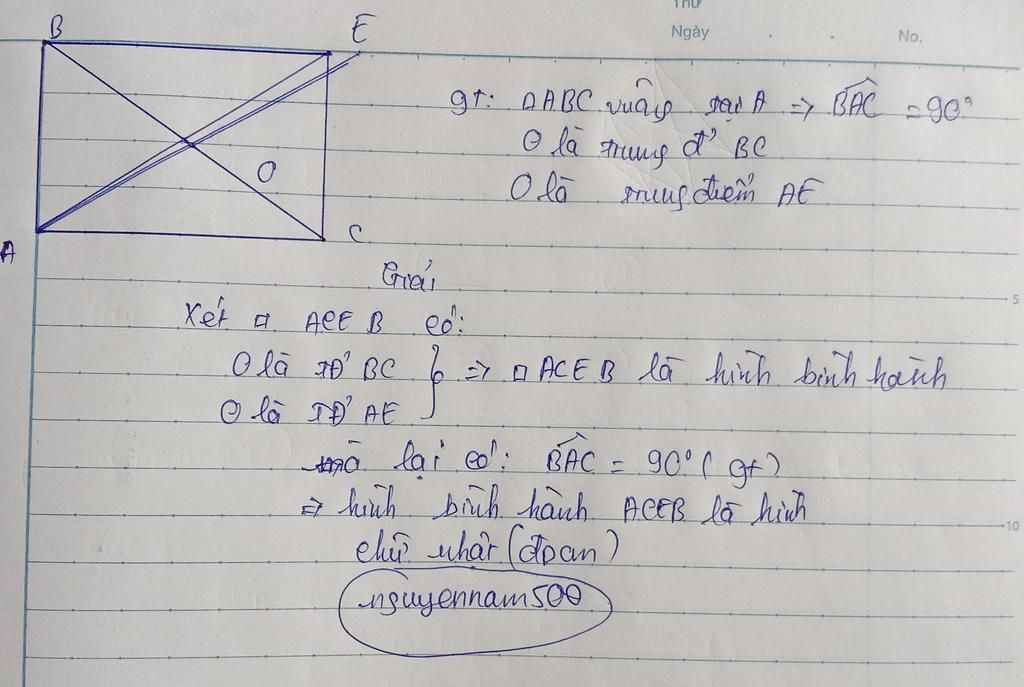 Thứ
Ngày . . No.
B E
gt: △ABC vuông tại A => BAC = 90°
O là trung đ' BC
O là trung điểm AE
O
A C
Giải
Xét □ ACEB có:
O là TĐ' BC } => □ ACEB là hình bình hành
O là TĐ' AE
mà lại có: BAC = 90° (gt)
=> hình bình hành ACEB là hình
chữ nhật (đpcm)
nguyennam500
5
10